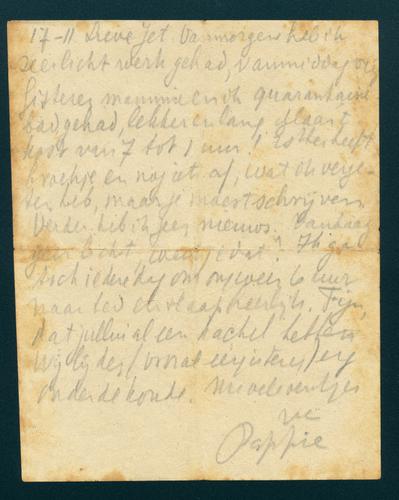 17-11 Lieve Jet. Vanmorgen heb ik
zeer licht werk gehad, vanmiddag vrij
Gisteren mammie en ik quarantaine
bad gehad, lekker en lang
van 7 tot 1 uur! Esther heeft
broekje en nog iets af, wat ik verge-
ten heb, maar je moest schrijven.
Verder heb ik geen nieuws. Vandaag
geen licht, weet je dat? Ik ga
toch iedere dag om ongeveer 6 uur
naar bed en slaap heerlijk. Fijn,
dat jullie al een kachel hebben
Wij lijden (vooral gisteren) erg
onder de koude. Nu veel
van
Pappie